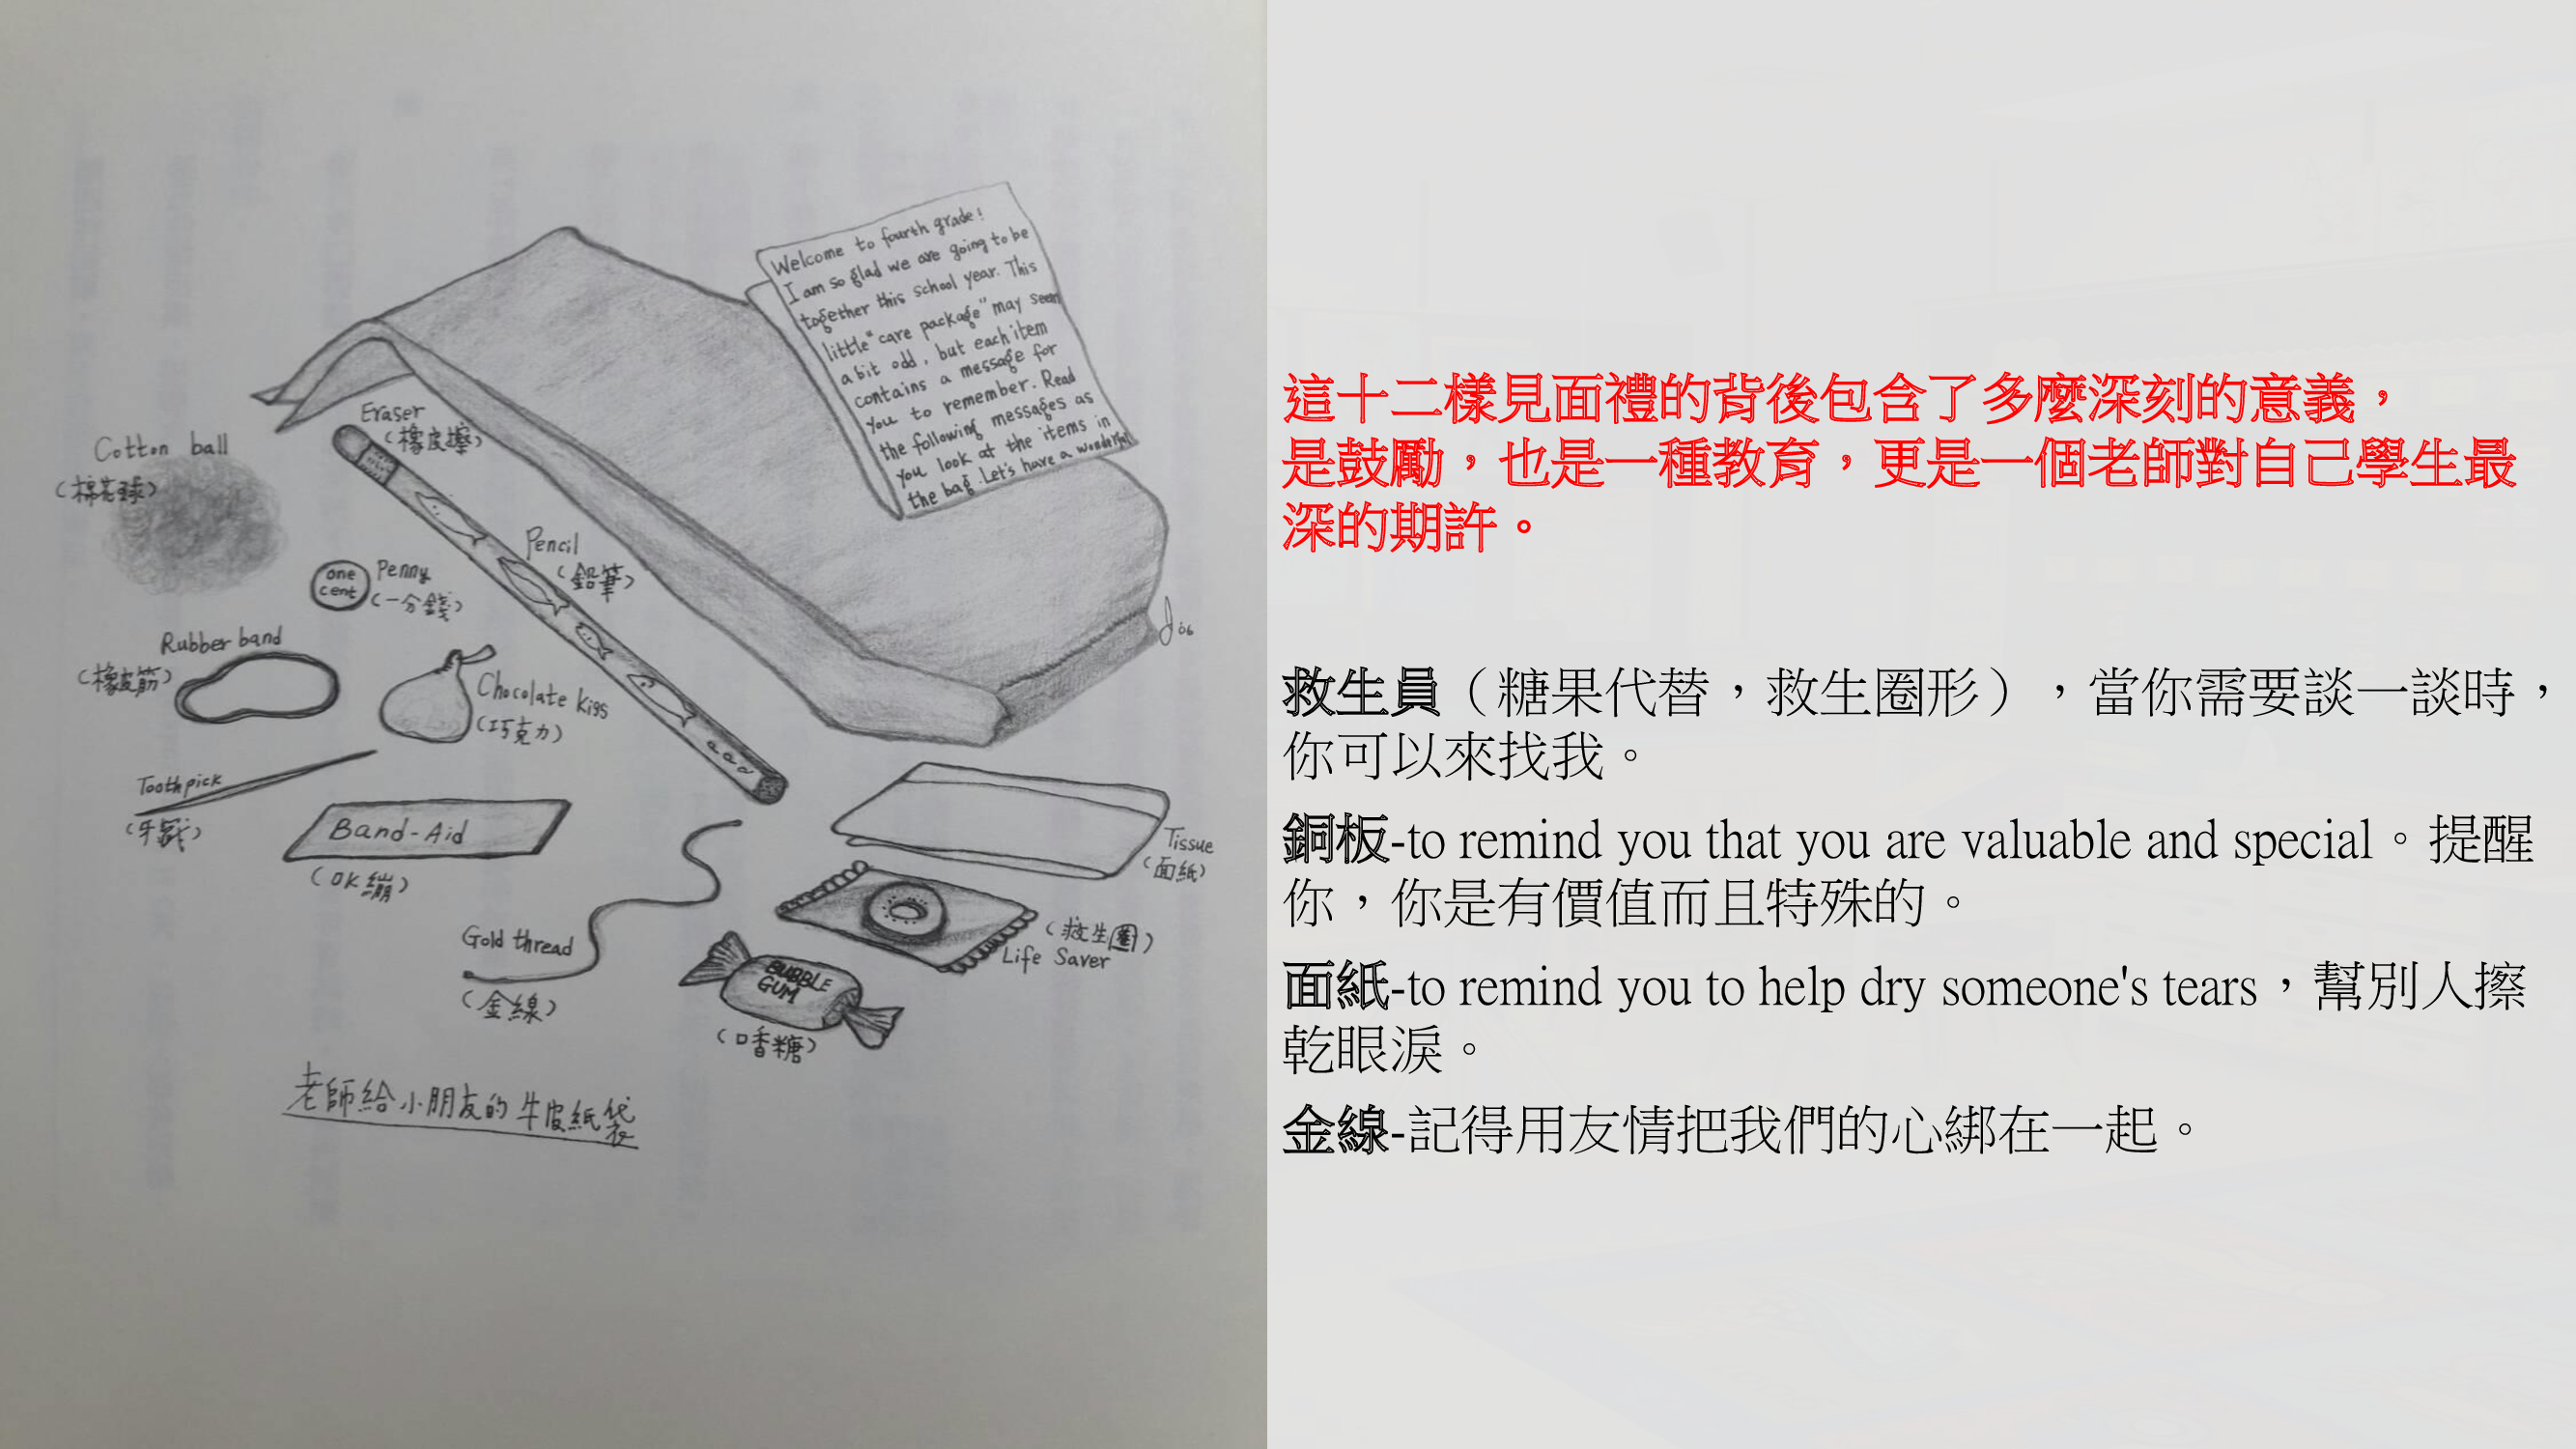 Welcome to fourth grade!
I am so glad we are going to be
together this school year. This
little "care package" may seem
a bit odd, but each item
contains a message for
you to remember. Read
the following messages as
you look at the items in
the bag. Let's have a wonderful
Eraser
(橡皮擦)
Cotton ball
(棉花球)
Pencil
(鉛筆)
one
cent
Penny
(一分錢)
Rubber band
(橡皮筋)
Chocolate kiss
(巧克力)
Toothpick
(牙籤)
Band-Aid
(OK繃)
Tissue
(面紙)
Gold thread
(金線)
(救生圈)
Life Saver
BUBBLE
GUM
(口香糖)
老師給小朋友的牛皮紙袋
這十二樣見面禮的背後包含了多麼深刻的意義，
是鼓勵，也是一種教育，更是一個老師對自己學生最
深的期許。
救生員（糖果代替，救生圈形），當你需要談一談時，
你可以來找我。
銅板-to remind you that you are valuable and special。提醒
你，你是有價值而且特殊的。
面紙-to remind you to help dry someone's tears，幫別人擦
乾眼淚。
金線-記得用友情把我們的心綁在一起。